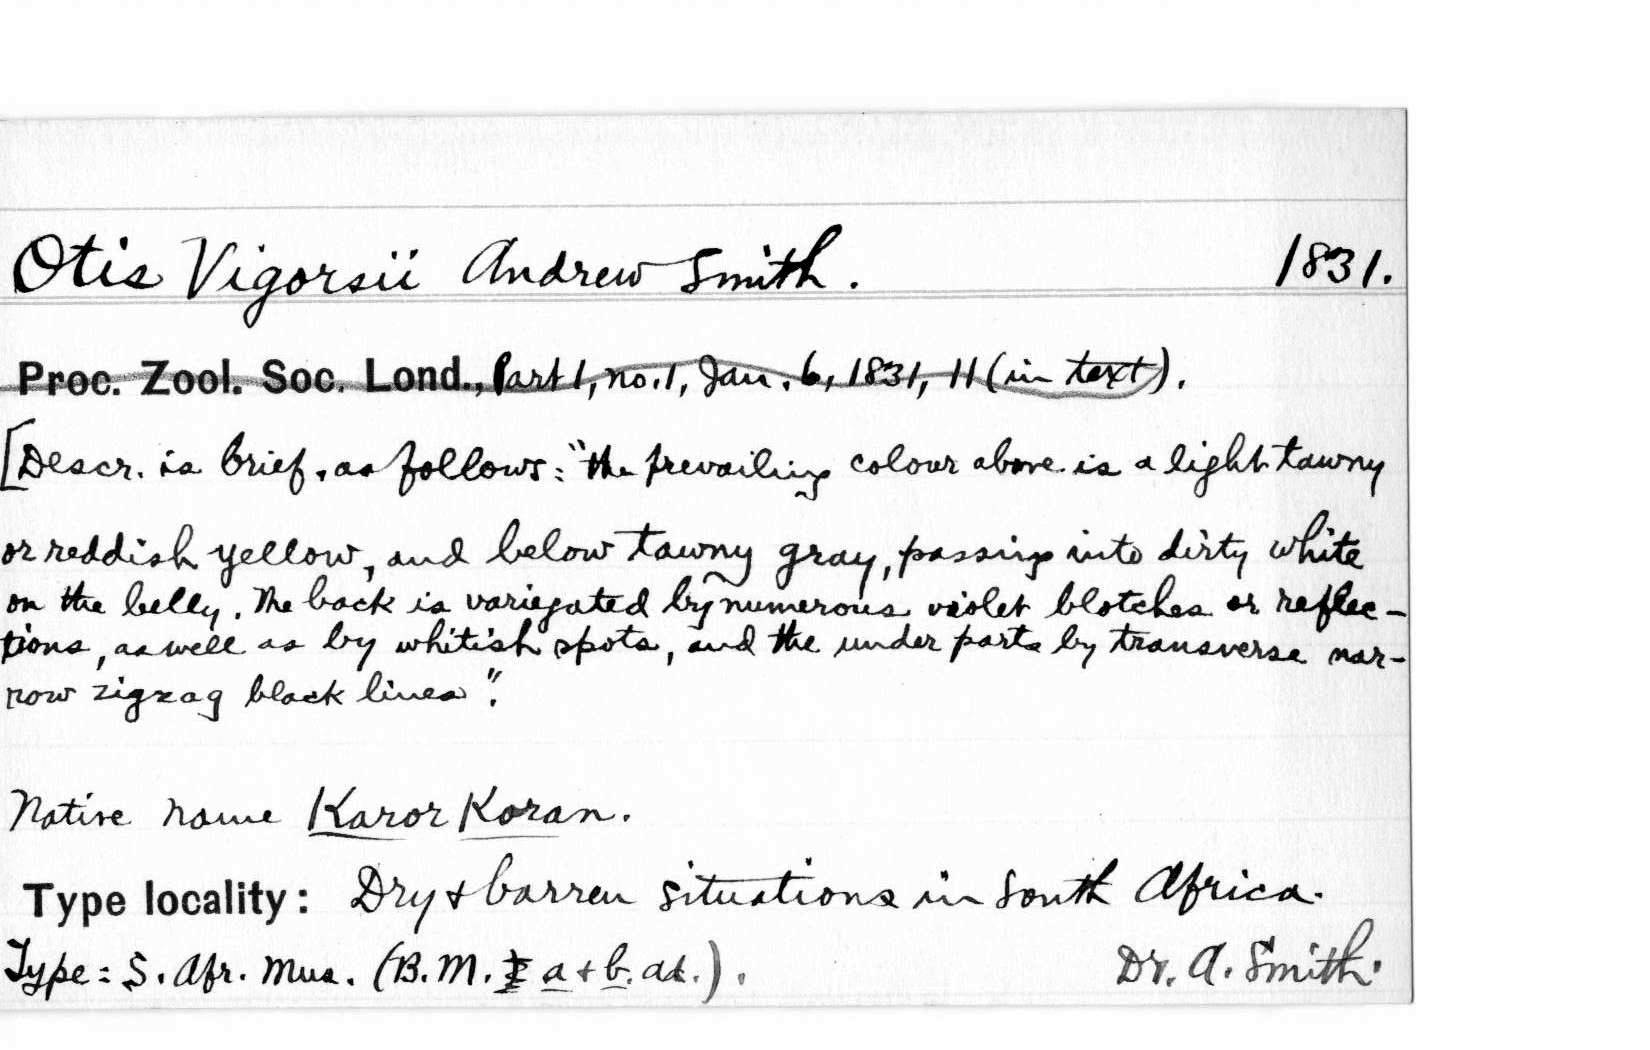 Otis Vigorsii Andrew Smith. 1831.
Proc. Zool. Soc. Lond., Part 1, no. 1, Jan. 6, 1831, 11 (in text).
[Descr. is brief, as follows: "the prevailing colour above is a light tawny
or reddish yellow, and below tawny gray, passing into dirty white
on the belly. The back is variegated by numerous violet blotches or reflec-
tions, as well as by whitish spots, and the under parts by transverse nar-
row zigzag black lines".
Native name Karor Koran.
Type locality: Dry & barren situations in South Africa.
Type: S. Afr. Mus. (B.M. a & b. ad.). Dr. A. Smith.